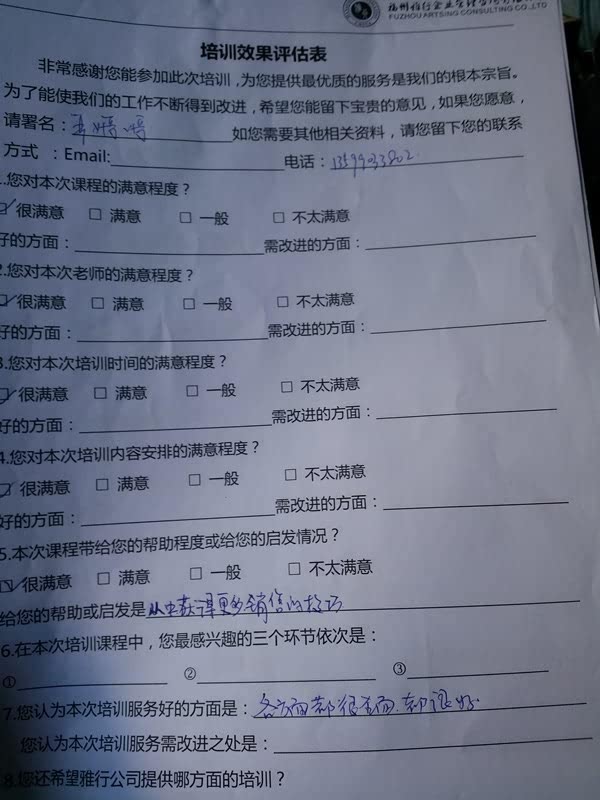 FUZHOU ARTSING CONSULTING CO.,LTD
培训效果评估表
非常感谢您能参加此次培训,为您提供最优质的服务是我们的根本宗旨。
为了能使我们的工作不断得到改进,希望您能留下宝贵的意见,如果您愿意,
请署名: 如您需要其他相关资料,请您留下您的联系
方式 :Email: 电话:
.您对本次课程的满意程度?
☑很满意 □ 满意 □ 一般 □ 不太满意
好的方面: 需改进的方面:
2.您对本次老师的满意程度?
☑很满意 □ 满意 □ 一般 □ 不太满意
好的方面: 需改进的方面:
3.您对本次培训时间的满意程度?
☑很满意 □ 满意 □ 一般 □ 不太满意
好的方面: 需改进的方面:
4.您对本次培训内容安排的满意程度?
☑很满意 □ 满意 □ 一般 □ 不太满意
好的方面: 需改进的方面:
5.本次课程带给您的帮助程度或给您的启发情况?
☑很满意 □ 满意 □ 一般 □ 不太满意
给您的帮助或启发是从中获得更多销售的技巧
6.在本次培训课程中,您最感兴趣的三个环节依次是:
① ② ③
7.您认为本次培训服务好的方面是:各方面都很全面.都很好.
您认为本次培训服务需改进之处是:
8.您还希望雅行公司提供哪方面的培训?